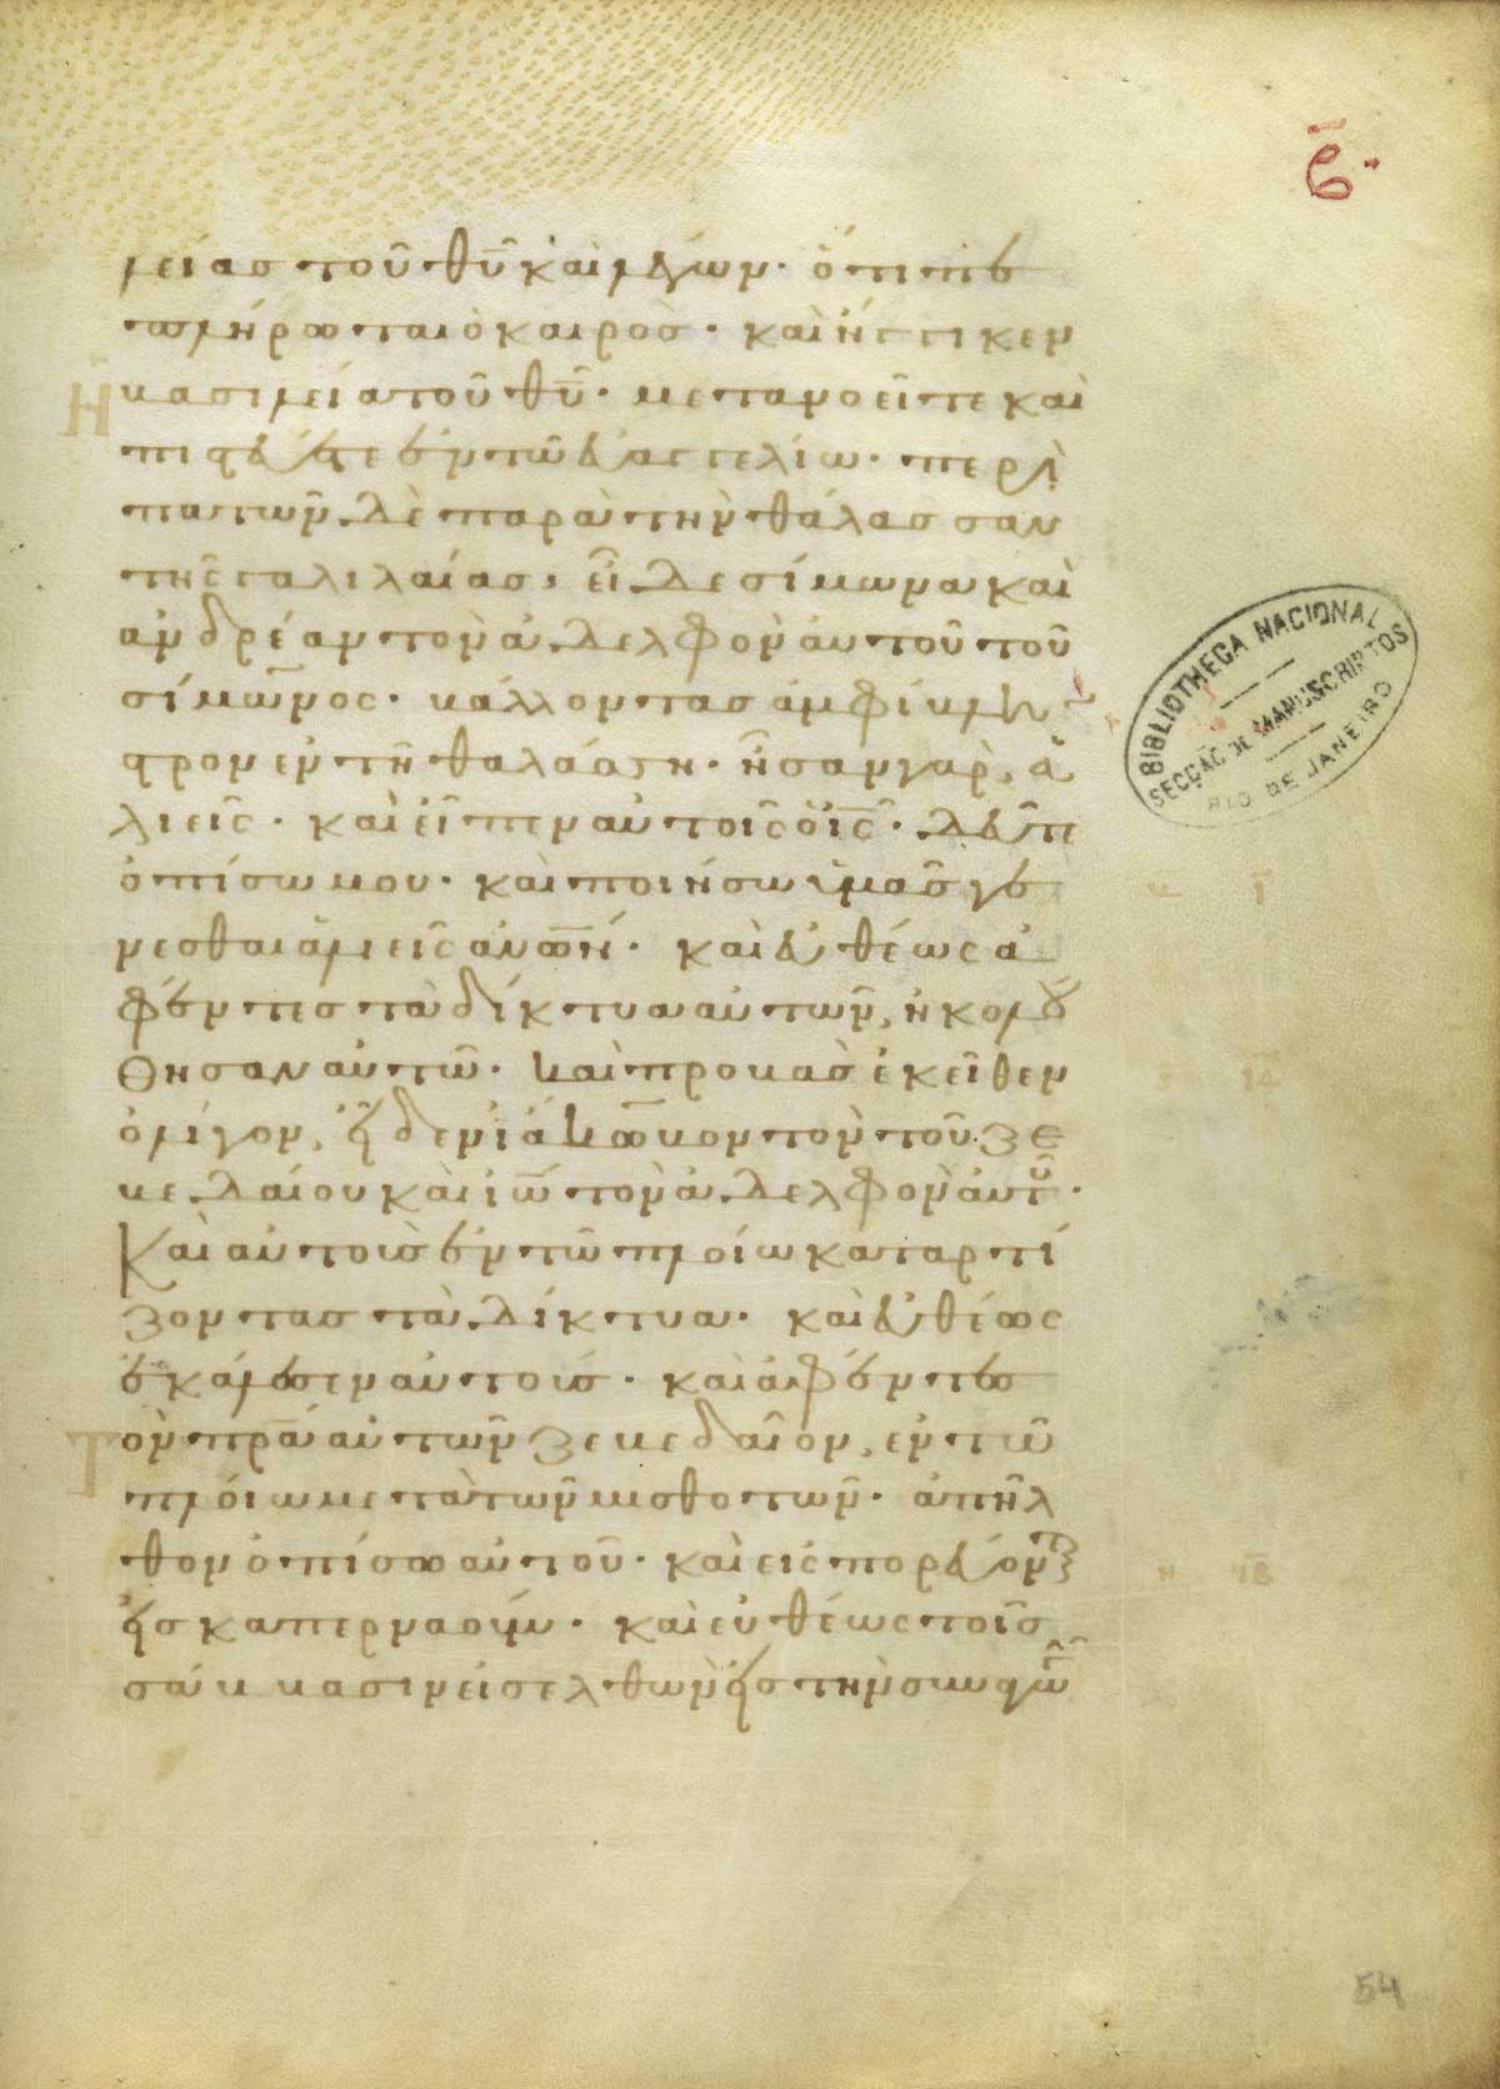 ϛ·
λείας τοῦ θῦ καὶ λέγων· ὅτι πε
πλήρωται ὁ καιρὸς· καὶ ἤγγικεν
ἡ βασιλεία τοῦ θῦ· μετανοεῖτε καὶ
πιστεύετε ἐν τῶ εὐαγγελίω· περι
πατῶν δὲ παρὰ τὴν θάλασσαν
τῆς γαλιλαίας, εἶδε σίμωνα καὶ
ἀνδρέαν τὸν ἀδελφὸν αὐτοῦ τοῦ
σίμωνος· βάλλοντας ἀμφίβλη
στρον ἐν τῆ θαλάσση· ἦσαν γὰρ, ἁ
λιεῖς· καὶ εἶπεν αὐτοῖς ὁ ἰς· δεῦτε
ὀπίσω μου· καὶ ποιήσω ὑμᾶς γε
νέσθαι ἁλιεῖς ἀνων· καὶ εὐθέως ἀ
φέντες τὰ δίκτυα αὐτῶν, ἠκολού
θησαν αὐτῶ· καὶ προβὰς ἐκεῖθεν
ὀλίγον, εἶδεν ἰάκωβον τὸν τοῦ ζε
βεδαίου καὶ ἰω τὸν ἀδελφὸν αὐτοῦ·
καὶ αὐτοὺς ἐν τῶ πλοίω καταρτί
ζοντας τὰ δίκτυα· καὶ εὐθέως
ἐκάλεσεν αὐτούς· καὶ ἀφέντες
τὸν πρα αὐτῶν ζεβεδαῖον, ἐν τῶ
πλοίω μετὰ τῶν μισθωτῶν· ἀπῆλ
θον ὀπίσω αὐτοῦ· καὶ εἰσπορεύον
εἰς καπερναούμ· καὶ εὐθέως τοῖς
σάββασιν εἰσελθὼν εἰς τὴν συναγω
BIBLIOTHECA NACIONAL
SECÇÃO DE MANUSCRIPTOS
RIO DE JANEIRO
54